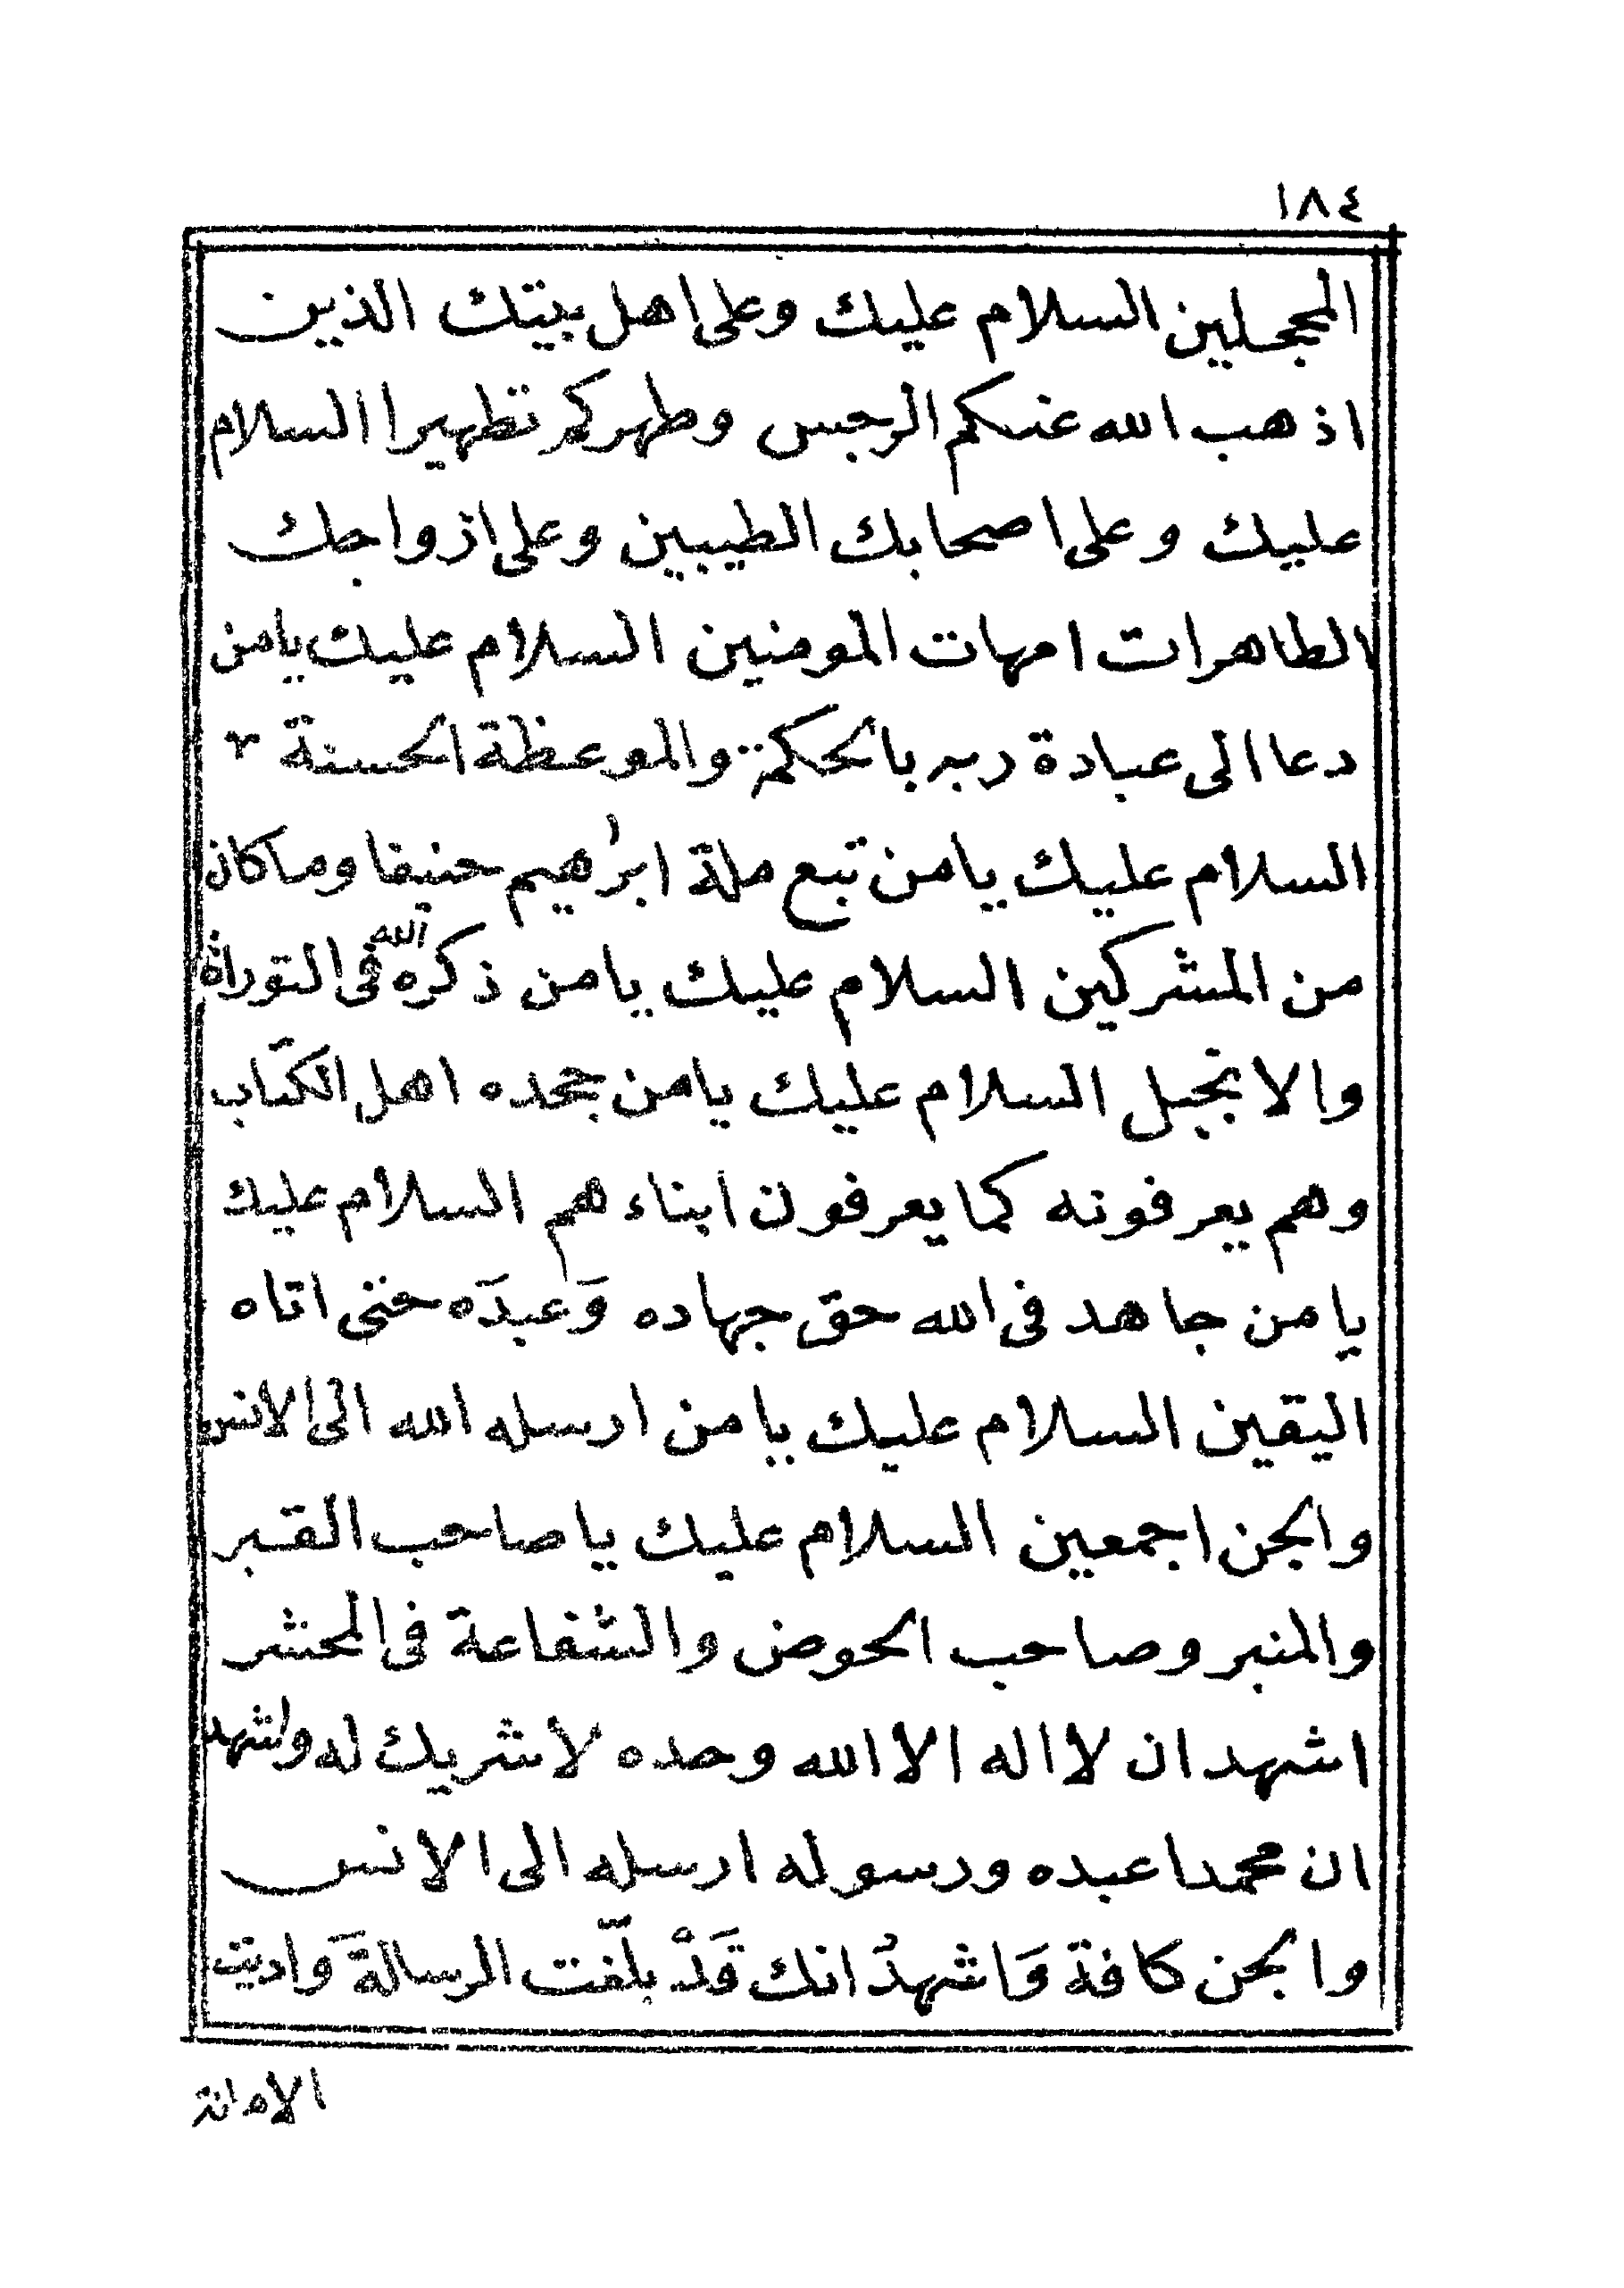 ١٨٤
المحجلين السلام عليك وعلى اهل بيتك الذين
اذهب الله عنكم الرجس وطهركم تطهيرا السلام
عليك وعلى اصحابك الطيبين وعلى ازواجك
الطاهرات امهات المومنين السلام عليك يامن
دعا الى عبادة ربه بالحكمة والموعظة الحسنة
السلام عليك يامن تبع ملة ابرٰهيم حنيفا وماكان
من المشركين السلام عليك يامن ذكره الله فى التوراة
والانجيل السلام عليك يامن جحده اهل الكتاب
وهم يعرفونه كما يعرفون ابناءهم السلام عليك
يامن جاهد فى الله حق جهاده وَعبدَه حتى اتاه
اليقين السلام عليك يامن ارسله الله الى الانس
والجن اجمعين السلام عليك ياصاحب القبر
والمنبر وصاحب الحوض والشفاعة فى المحشر
اشهد ان لا اله الا الله وحده لا شريك له واشهد
ان محمدا عبده ورسوله ارسله الى الانس
والجن كافة وَاشهدُ انك قَدْ بلّغت الرسالةَ وَاديت
الامانة